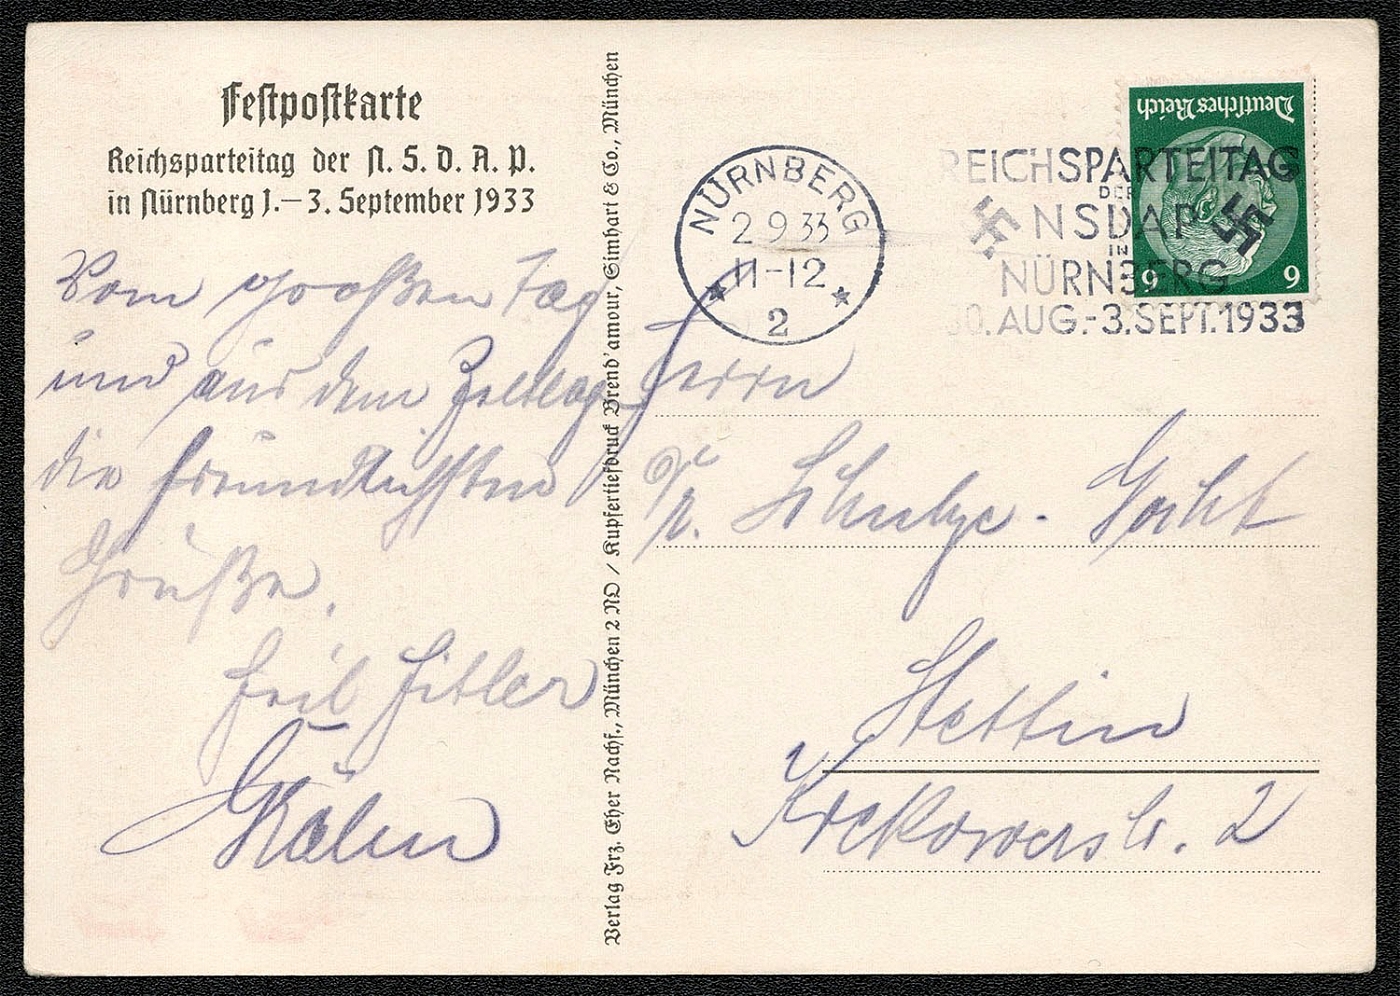 Festpostkarte
Reichsparteitag der N. S. D. A. P.
in Nürnberg 1.–3. September 1933
Vom großen Tag
und aus dem Zeltlager
die freundlichsten
Grüße.
Heil Hitler
Verlag Frz. Eher Nachf., München 2 NO / Kupfertiefdruck Brend'amour, Simhart & Co., München
NÜRNBERG
2 9 33
11-12
2
REICHSPARTEITAG
DER
NSDAP
IN
NÜRNBERG
30. AUG.-3. SEPT. 1933
Deutsches Reich
6 6
Herrn
Stettin
Kreckowerstr. 2